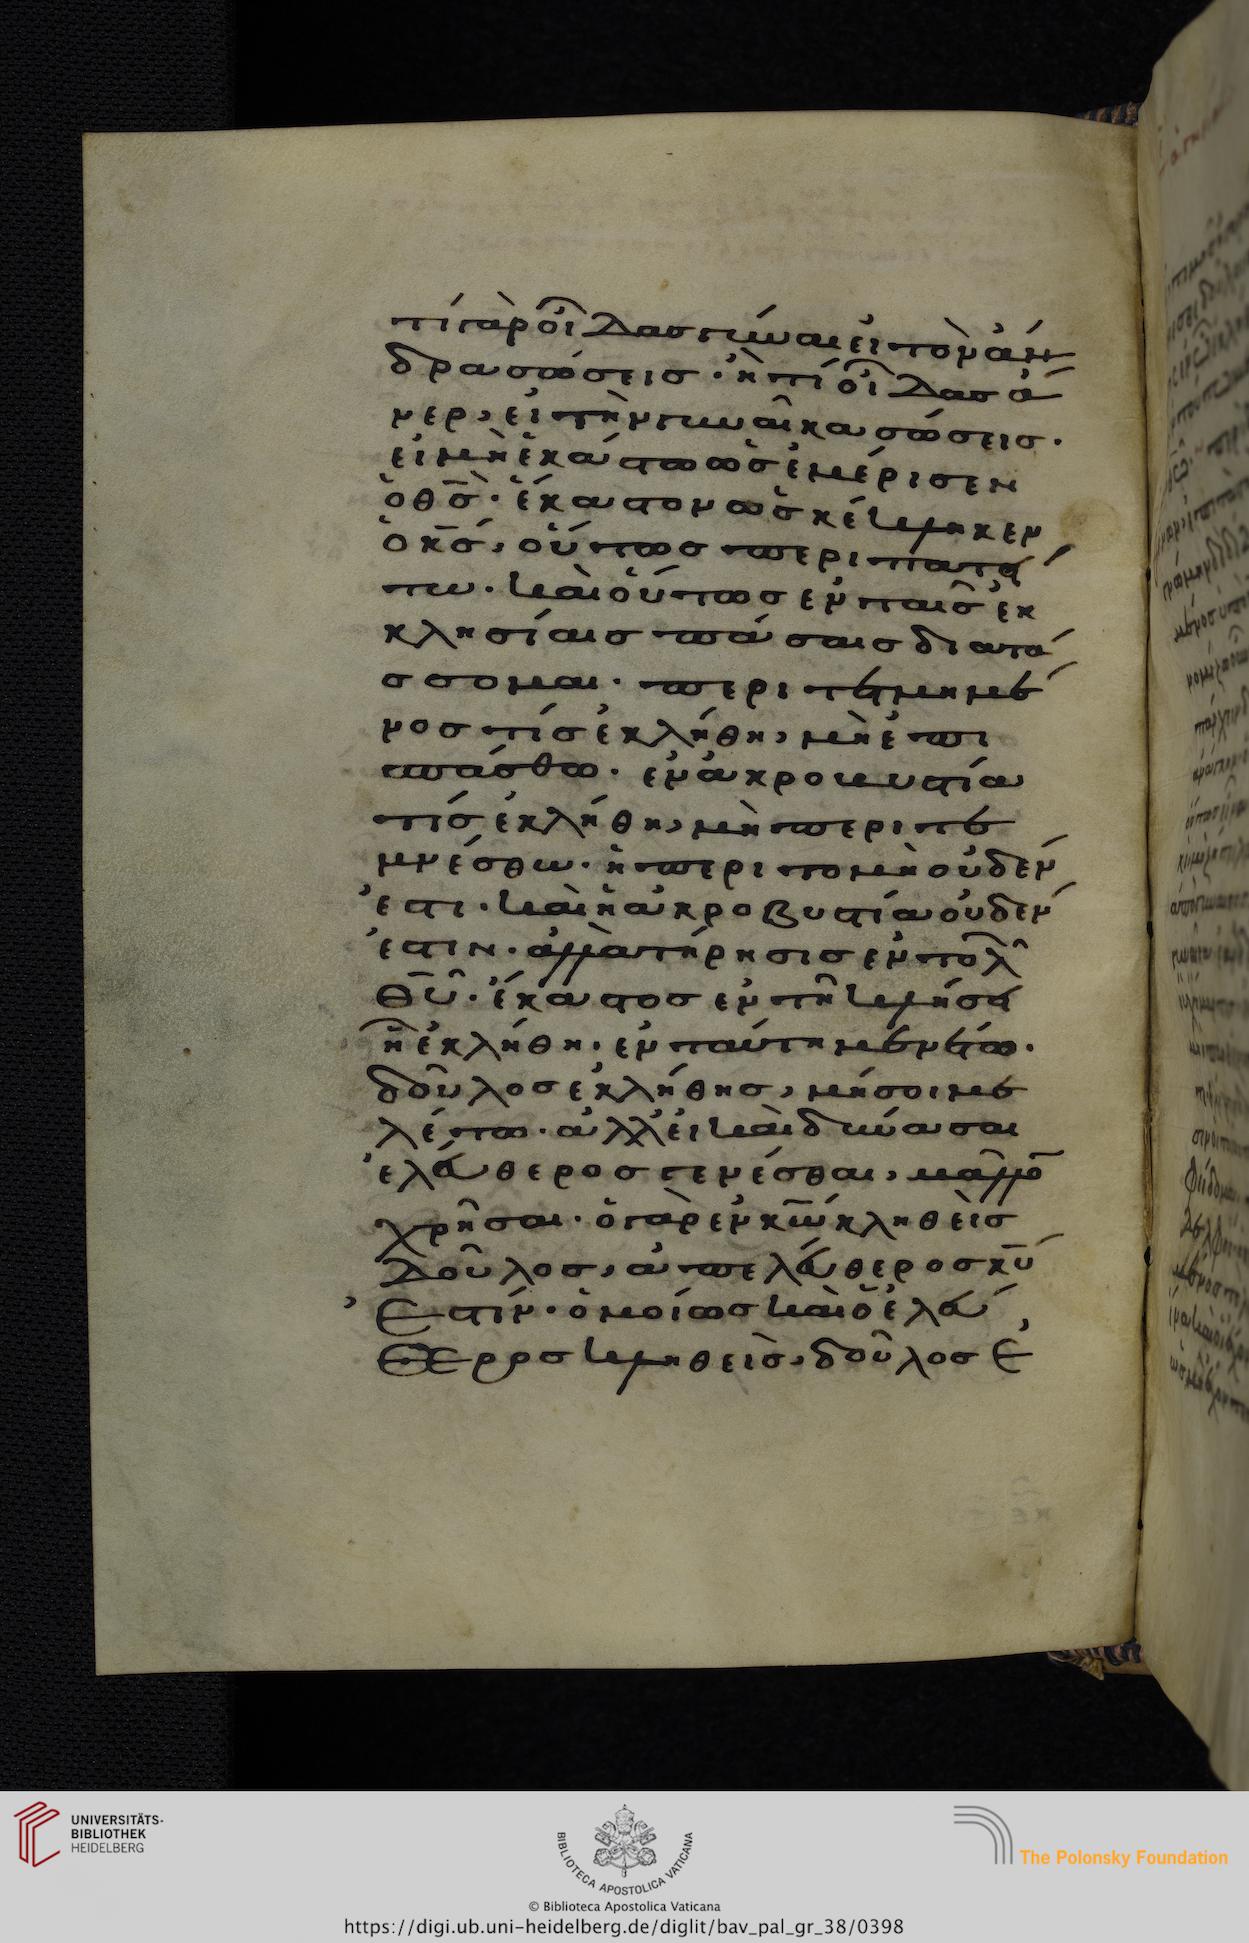 τί γὰρ οἶδας γύναι εἰ τὸν ἄν
δρα σώσεις· ἢ τί οἶδας ἄ
νερ, εἰ τὴν γυναῖκα σώσεις·
εἰ μὴ ἑκάστω ὡς ἐμέρισεν
ὁ θς̅· ἕκαστον ὡς κέκληκεν
ὁ κς̅, οὕτως περιπατεί
τω· καὶ οὕτως ἐν ταῖς ἐκ
κλησίαις πάσαις διατά
σσομαι· περιτετμημέ
νος τίς ἐκλήθη, μὴ ἐπι
σπάσθω· ἐν ἀκροβυστία
τίς ἐκλήθη, μὴ περιτε
μνέσθω· ἡ περιτομὴ οὐδέν
ἐστι· καὶ ἡ ἀκροβυστία οὐδέν
ἐστιν· ἀλλὰ τήρησις ἐντολῶ
θυ̅· ἕκαστος ἐν τῆ κλήσει
ἧ ἐκλήθη· ἐν ταύτη μενέτω·
δοῦλος ἐκλήθης, μή σοι με
λέτω· ἀλλ' εἰ καὶ δύνασαι
ἐλεύθερος γενέσθαι, μᾶλλο
χρῆσαι· ὁ γὰρ ἐν κω̅ κληθεὶς
δοῦλος, ἀπελεύθερος κυ̅
ἐστίν· ὁμοίως καὶ ὁ ἐλεύ
θερος κληθεὶς, δοῦλος ἐ
UNIVERSITÄTS-
BIBLIOTHEK
HEIDELBERG
BIBLIOTECA APOSTOLICA VATICANA
The Polonsky Foundation
© Biblioteca Apostolica Vaticana
https://digi.ub.uni-heidelberg.de/diglit/bav_pal_gr_38/0398